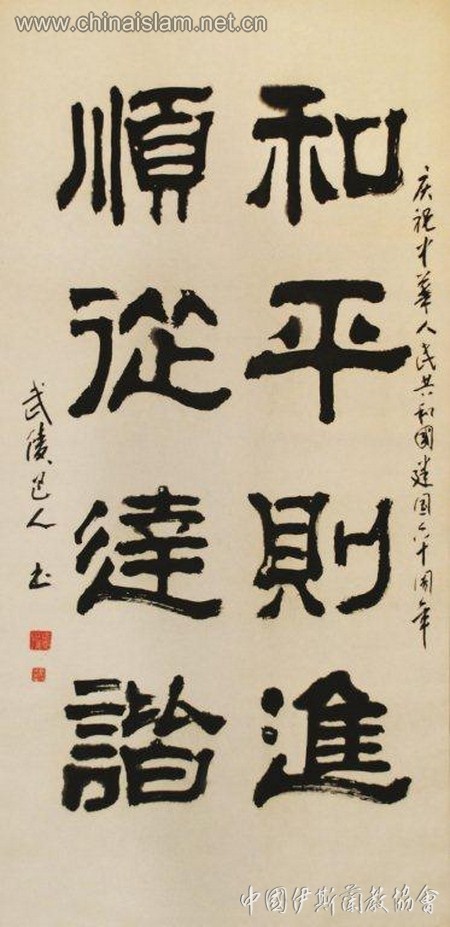 www.chinaislam.net.cn
庆祝中華人民共和國建国六十周年
和平則進
順從達諧
武陵邑人书
中國伊斯蘭教協會